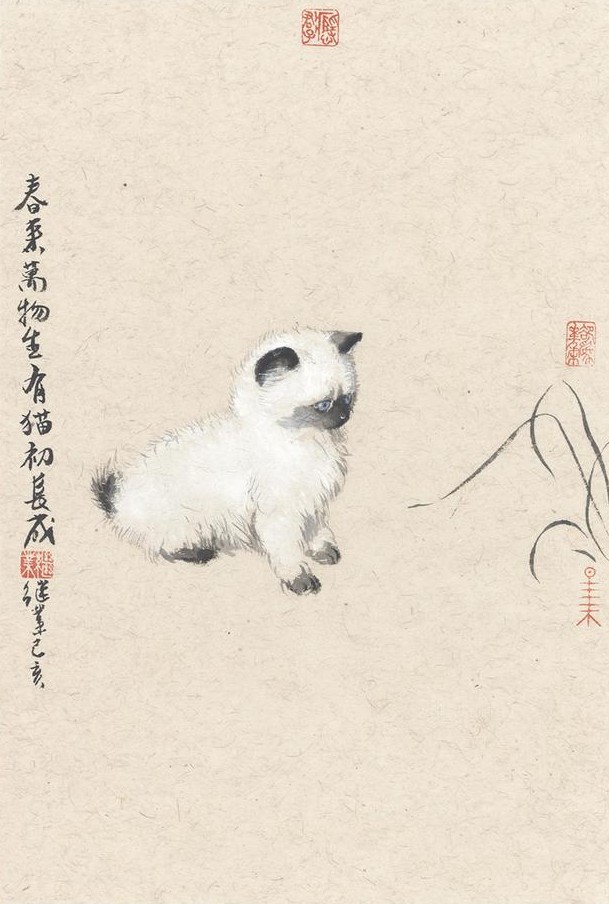 春來萬物生有猫初長成
继業己亥
继業